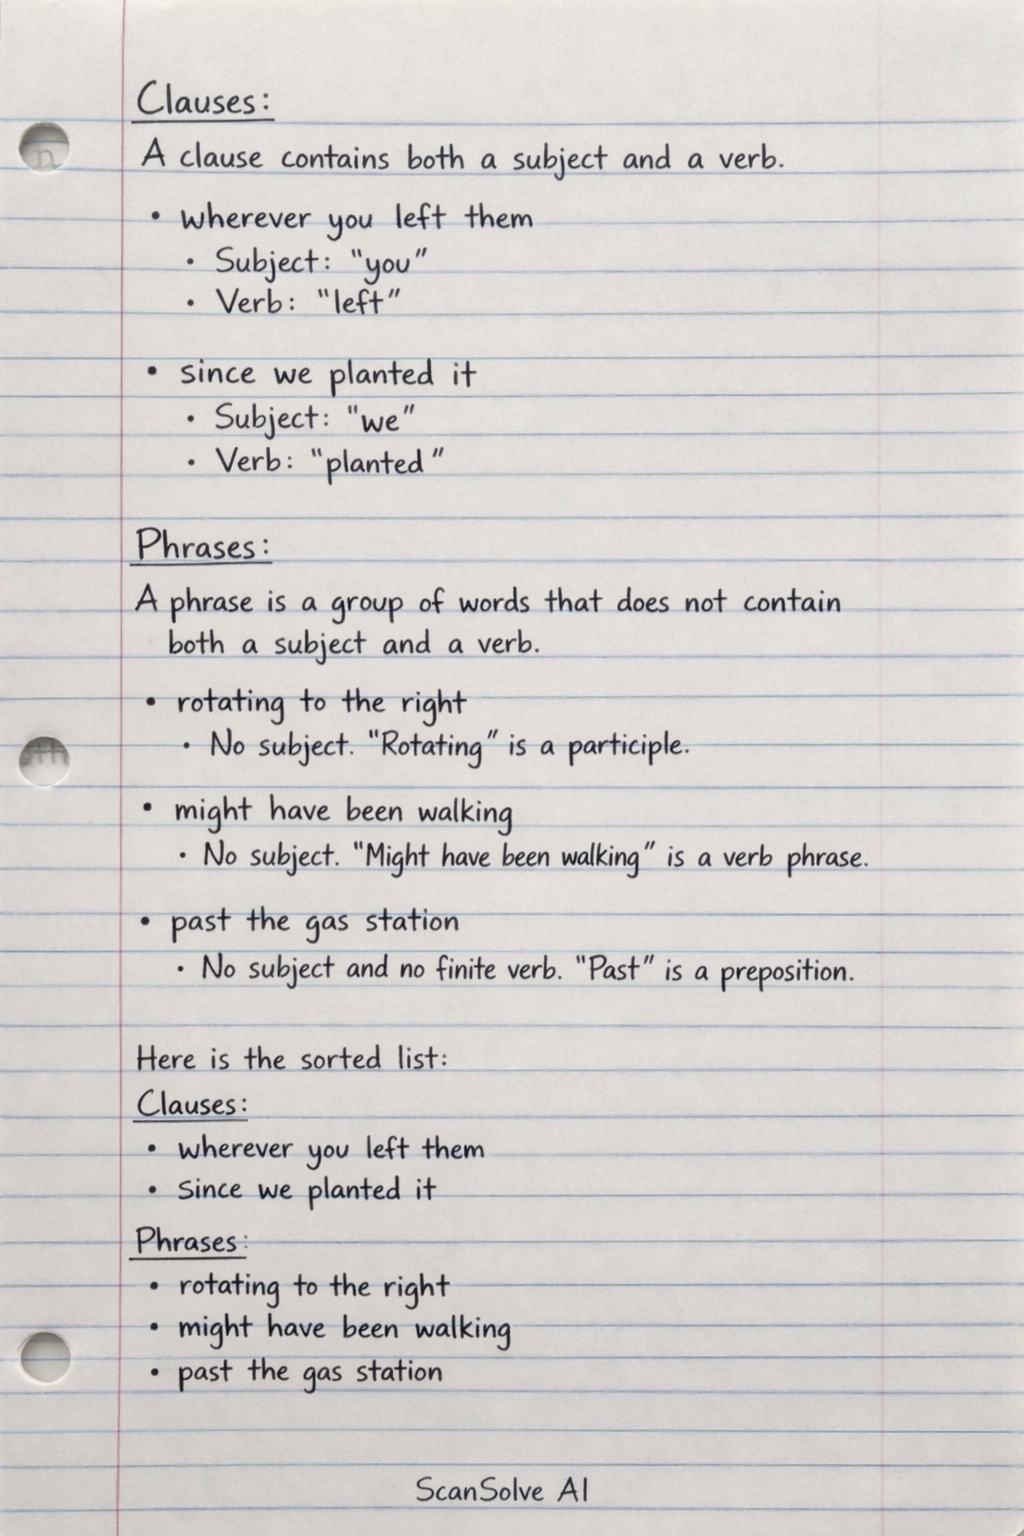 Clauses:
A clause contains both a subject and a verb.
• wherever you left them
• Subject: "you"
• Verb: "left"
• since we planted it
• Subject: "we"
• Verb: "planted"
Phrases:
A phrase is a group of words that does not contain
both a subject and a verb.
• rotating to the right
• No subject. "Rotating" is a participle.
• might have been walking
• No subject. "Might have been walking" is a verb phrase.
• past the gas station
• No subject and no finite verb. "Past" is a preposition.
Here is the sorted list:
Clauses:
• wherever you left them
• since we planted it
Phrases:
• rotating to the right
• might have been walking
• past the gas station
ScanSolve AI